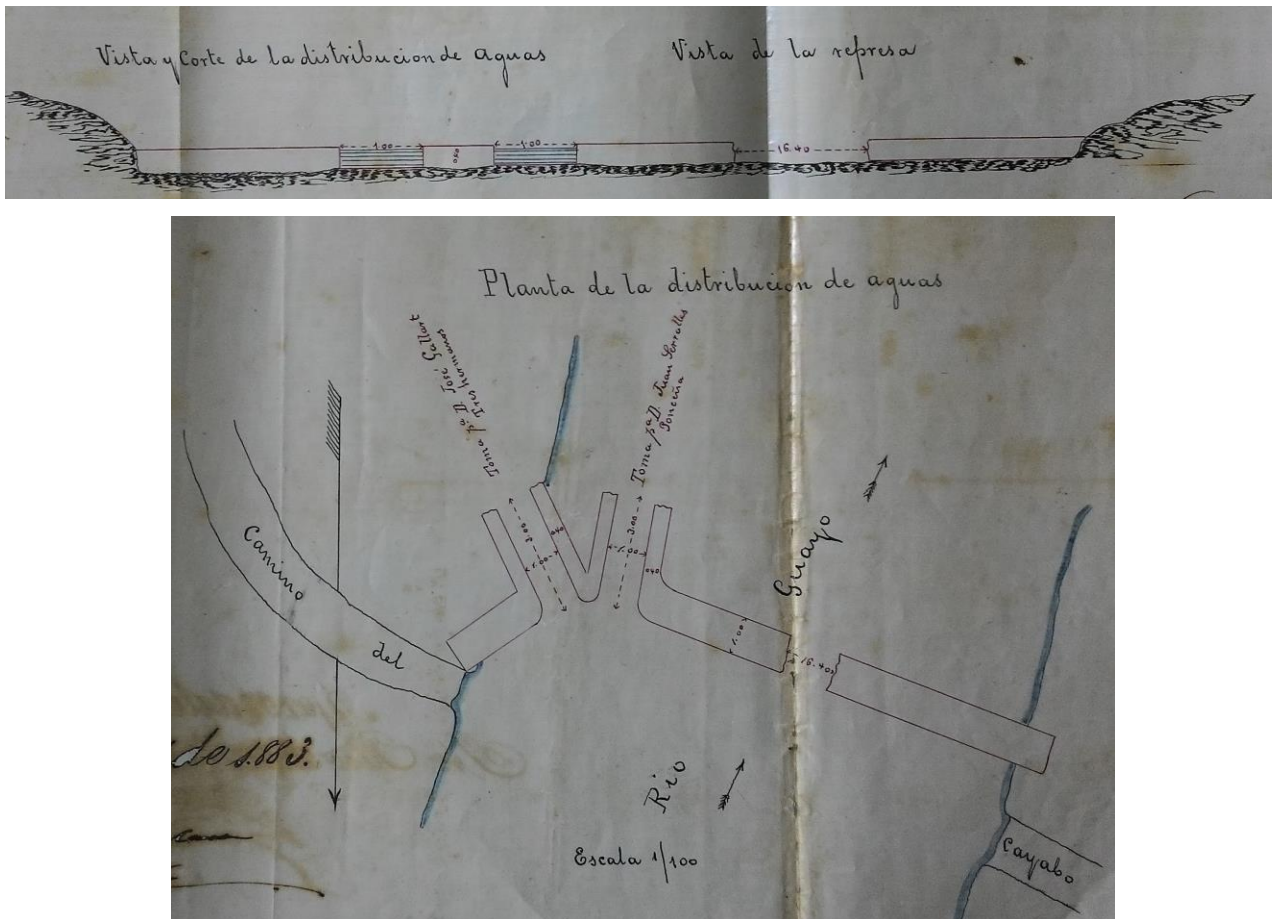 Vista y Corte de la distribucion de aguas
Vista de la represa
1.00
0.50
1.00
16.40
Planta de la distribucion de aguas
Toma pª D. José Gallart
Tres hermanos
Toma pª D. Juan Serralles
Ponceña
2.00
1.00
0.40
3.00
1.00
0.40
1.00
16.40
Camino
del
Guayo
Rio
de 1.883.
Escala 1/100
Cayabo